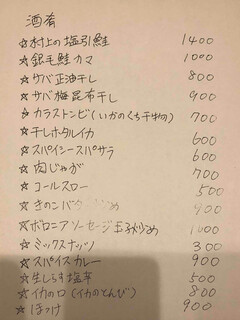 酒肴
☆村上の塩引鮭 1400
☆銀毛鮭カマ 1000
☆サバ正油干し 800
☆サバ梅昆布干し 900
☆カラストンビ(いかのくち干物) 700
☆干しホタルイカ 600
☆スパイシースパサラ 600
☆肉じゃが 700
☆コールスロー 500
☆きのこバター炒め 900
☆ボロニアソーセージ玉子炒め 1000
☆ミックスナッツ 300
☆スパイスカレー 900
☆生しらす塩辛 500
☆イカの口(イカのとんび) 800
☆ほっけ 900